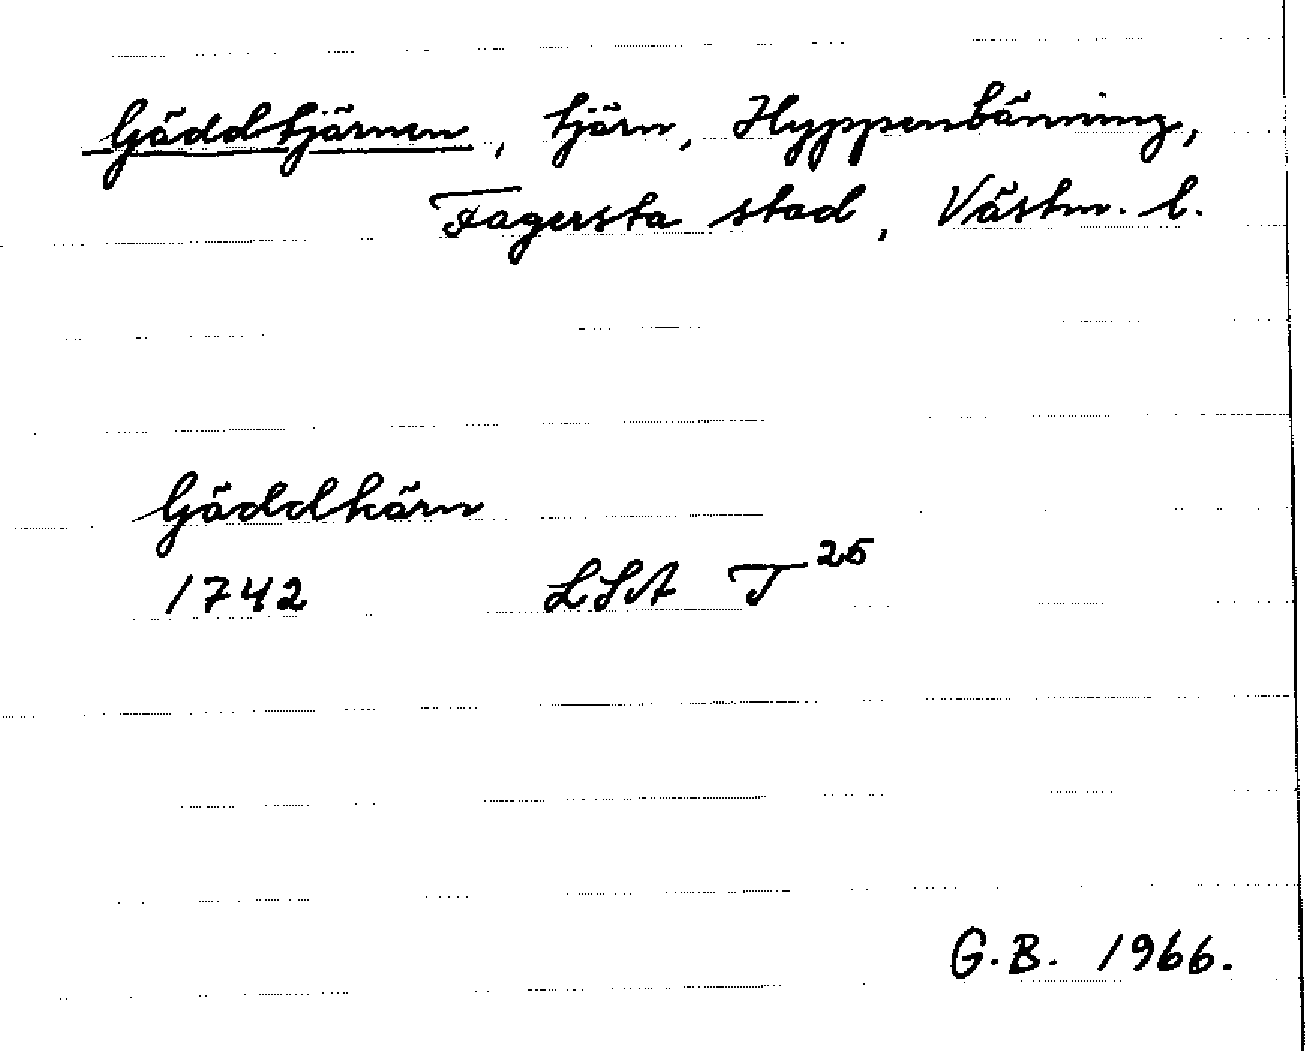 Gäddtjärnen, tjärn, Hyppenbänning,
Fagersta stad, Västm. l.
Gäddkärn
1742 LSA T 25
G.B. 1966.